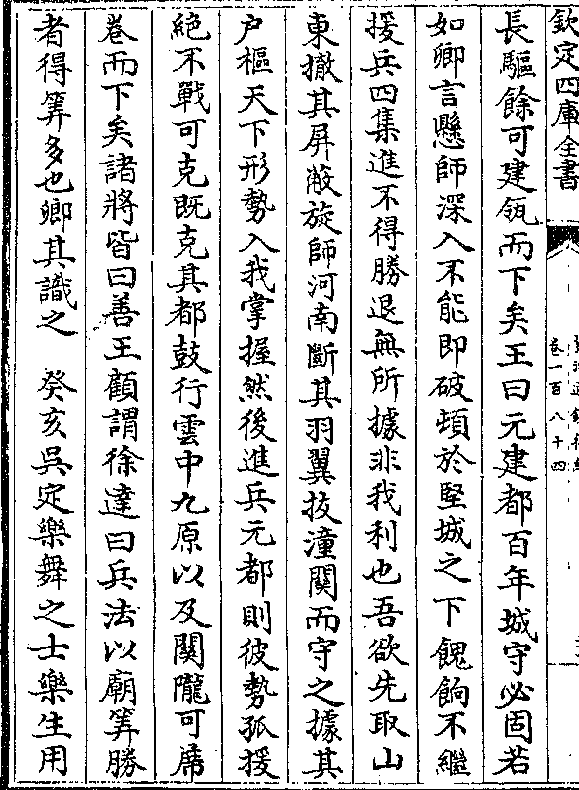 欽定四庫全書
卷一百八十四
長驅餘可建瓴而下矣王曰元建都百年城守必固若
如卿言懸師深入不能即破頓於堅城之下餽餉不繼
援兵四集進不得勝退無所據非我利也吾欲先取山
東撤其屏蔽旋師河南斷其羽翼抜潼關而守之據其
户樞天下形勢入我掌握然後進兵元都則彼勢孤援
絶不戰可克既克其都鼓行雲中九原以及關隴可席
卷而下矣諸將皆曰善王顧謂徐達曰兵法以廟筭勝
者得筭多也卿其識之　癸亥吳定樂舞之士樂生用